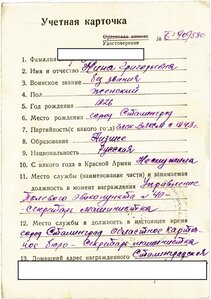 Учетная карточка
Орденская книжка
Удостоверение № Б-409580
1. Фамилия
2. Имя и отчество Нина Григорьевна
3. Воинское звание без звания
4. Пол женский
5. Год рождения 1926
6. Место рождения город Сталинград
7. Партийность (с какого года) член ВЛКСМ с 1943г.
8. Образование Низшее
9. Национальность Русская
10. С какого года в Красной Армии Не служила
11. Место службы (наименование части) и занимаемая
должность в момент награждения Управление
Полевого Эвакопункта № 40-
Секретарь машинистка
12. Место службы и должность в настоящее время
город Сталинград Областное
бюро - Секретарь машинистка
13. Домашний адрес награжденного Сталинградская